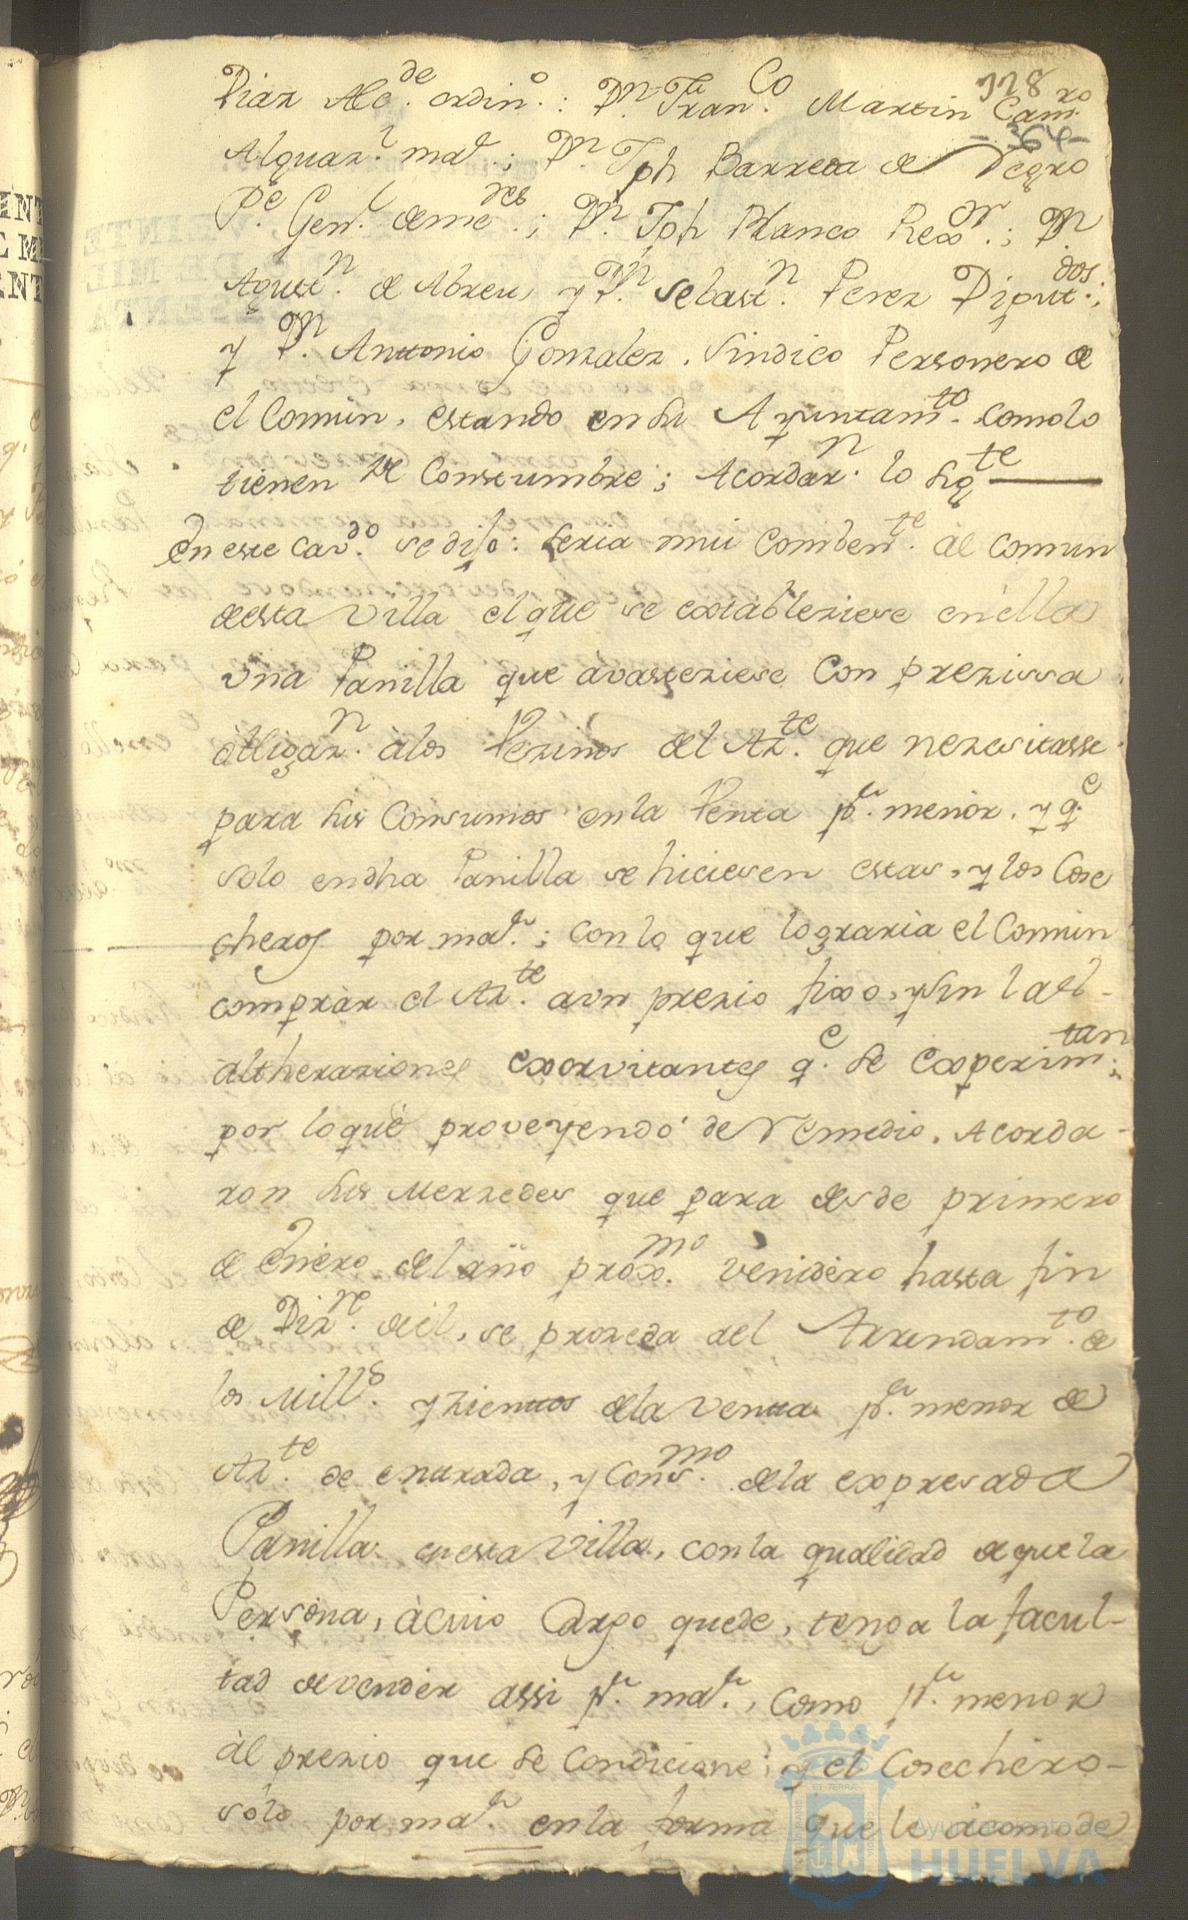 118
364
Diaz Alc.de ordin.o: D.n Fran.co Martin Cam.ro
Alguaz.l ma.r; D.n Jph Barreda de Negro
P.e Gen.l de me.res; D.n Jph Blanco Rex.or; D.n
Agust.n de Abreu, y D.n Sebast.n Perez Diput.dos;
y D.n Antonio Gonzalez. Sindico Personero de
el Comun, estando en su Ayuntam.to como lo
tienen de Constumbre; Acordar.n lo sig.te
En este Cav.do se dijo: seria mui comben.te al comun
desta Villa el que se extableziese en ella
Vna Panilla que avasteziese con prezissa
obligaz.n a los Vezinos del Az.te que nezesitasse
para sus Consumos en la Venta p.r menor, y q.e
solo en dha Panilla se hiciesen estas, y los Cose
cheros por ma.r; con lo que lograria el Comun
comprar el Az.te a un prezio fixo, y sin las
altheraziones exorvitantes q.e se experim.tan;
por lo que proveyendo de Remedio, Acorda-
ron sus Merzedes que para desde primero
de Enero del año prox.mo venidero hasta fin
de Diz.re del, se prozeda al Arrendam.to de
los Mill.s y zientos de la Venta p.r menor de
Az.te de entrada, y Cons.mo de la expresada
Panilla en esta Villa, con la qualidad de que la
Persona, a cuio Cargo quede, tenga la facul-
tad de vender assi p.r ma.r, como p.r menor
al prezio que se Condicione; y el Cosechero-
solo por ma.r en la forma que le acomode
Ayuntamiento de
HUELVA